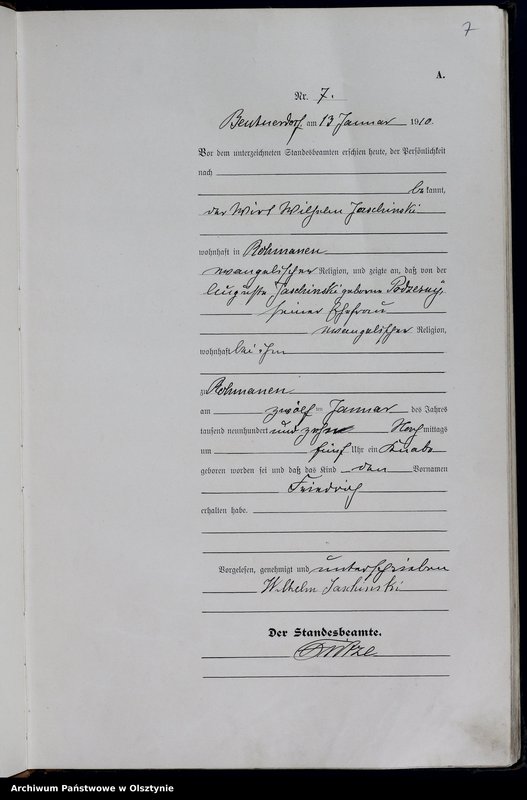 7
A.
Nr. 7.
Beutnerdorf am 13 Januar 1910.
Vor dem unterzeichneten Standesbeamten erschien heute, der Persönlichkeit
nach
be kannt,
der Wirt Wilhelm Jaschinski
wohnhaft in Rohmanen
evangelischer Religion, und zeigte an, daß von der
Auguste Jaschinski geborene
seiner Ehefrau
evangelischer Religion,
wohnhaft bei ihm
zu Rohmanen
am zwölften Januar des Jahres
tausend neunhundert und zehn Nach mittags
um fünf Uhr ein Knabe
geboren worden sei und daß das Kind den Vornamen
Friedrich
erhalten habe.
Vorgelesen, genehmigt und unterschrieben
Wilhelm Jaschinski
Der Standesbeamte.
Archiwum Państwowe w Olsztynie